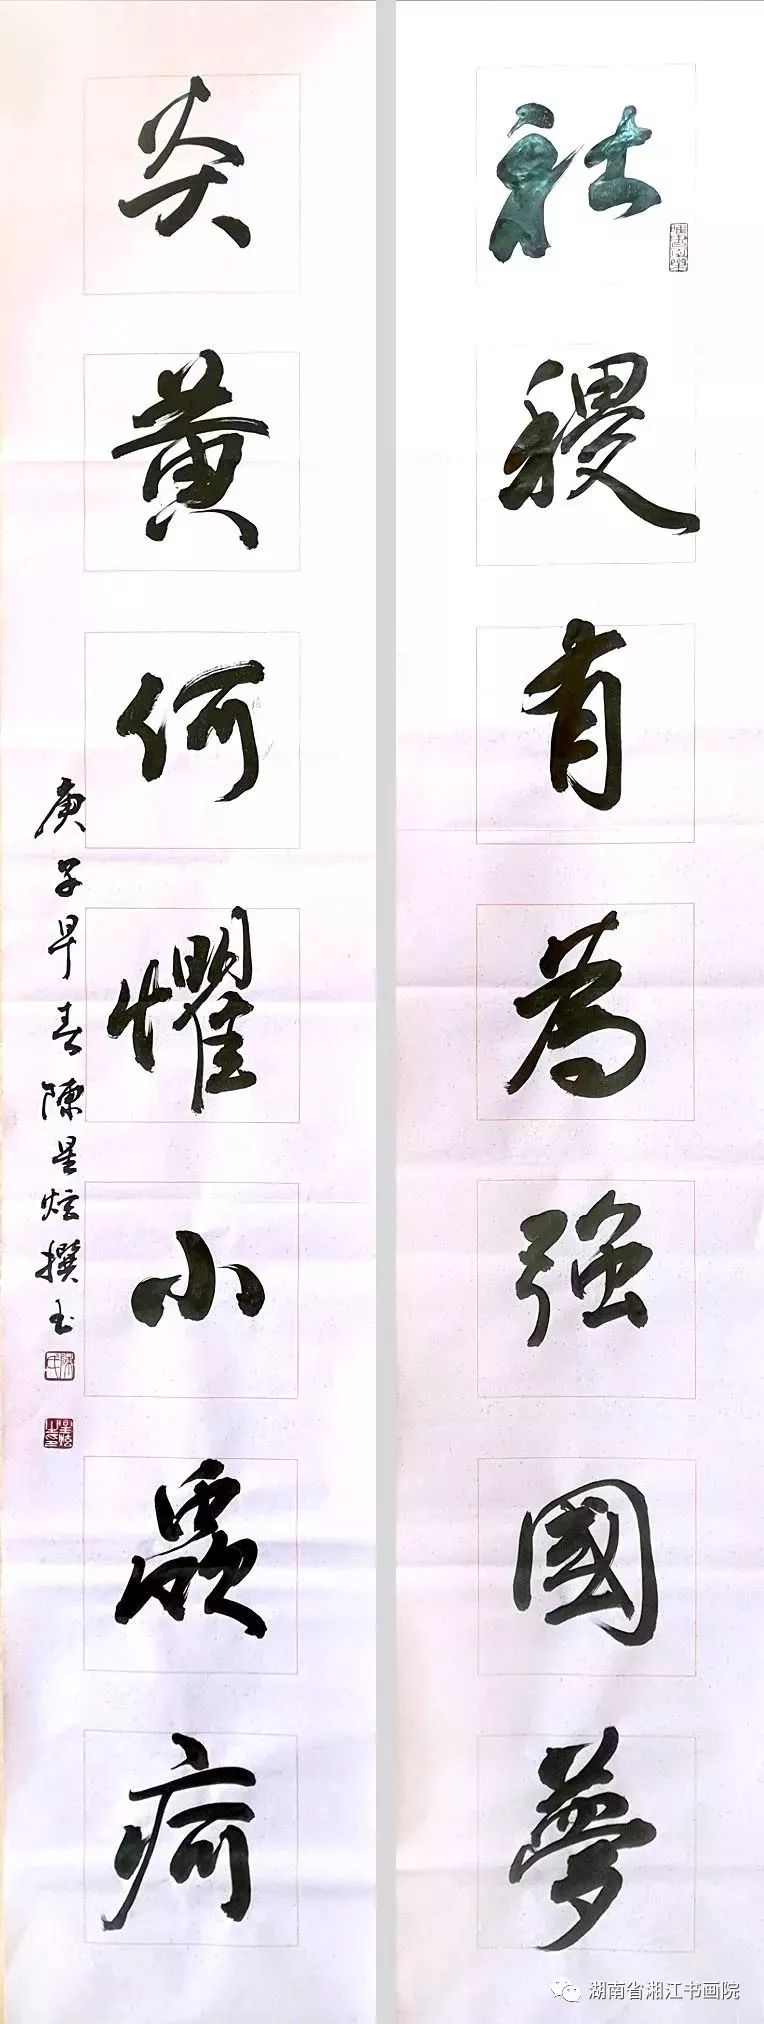 社稷有為強國夢
炎黄何懼小疴
庚子早春陳星炫撰书
湖南省湘江书画院